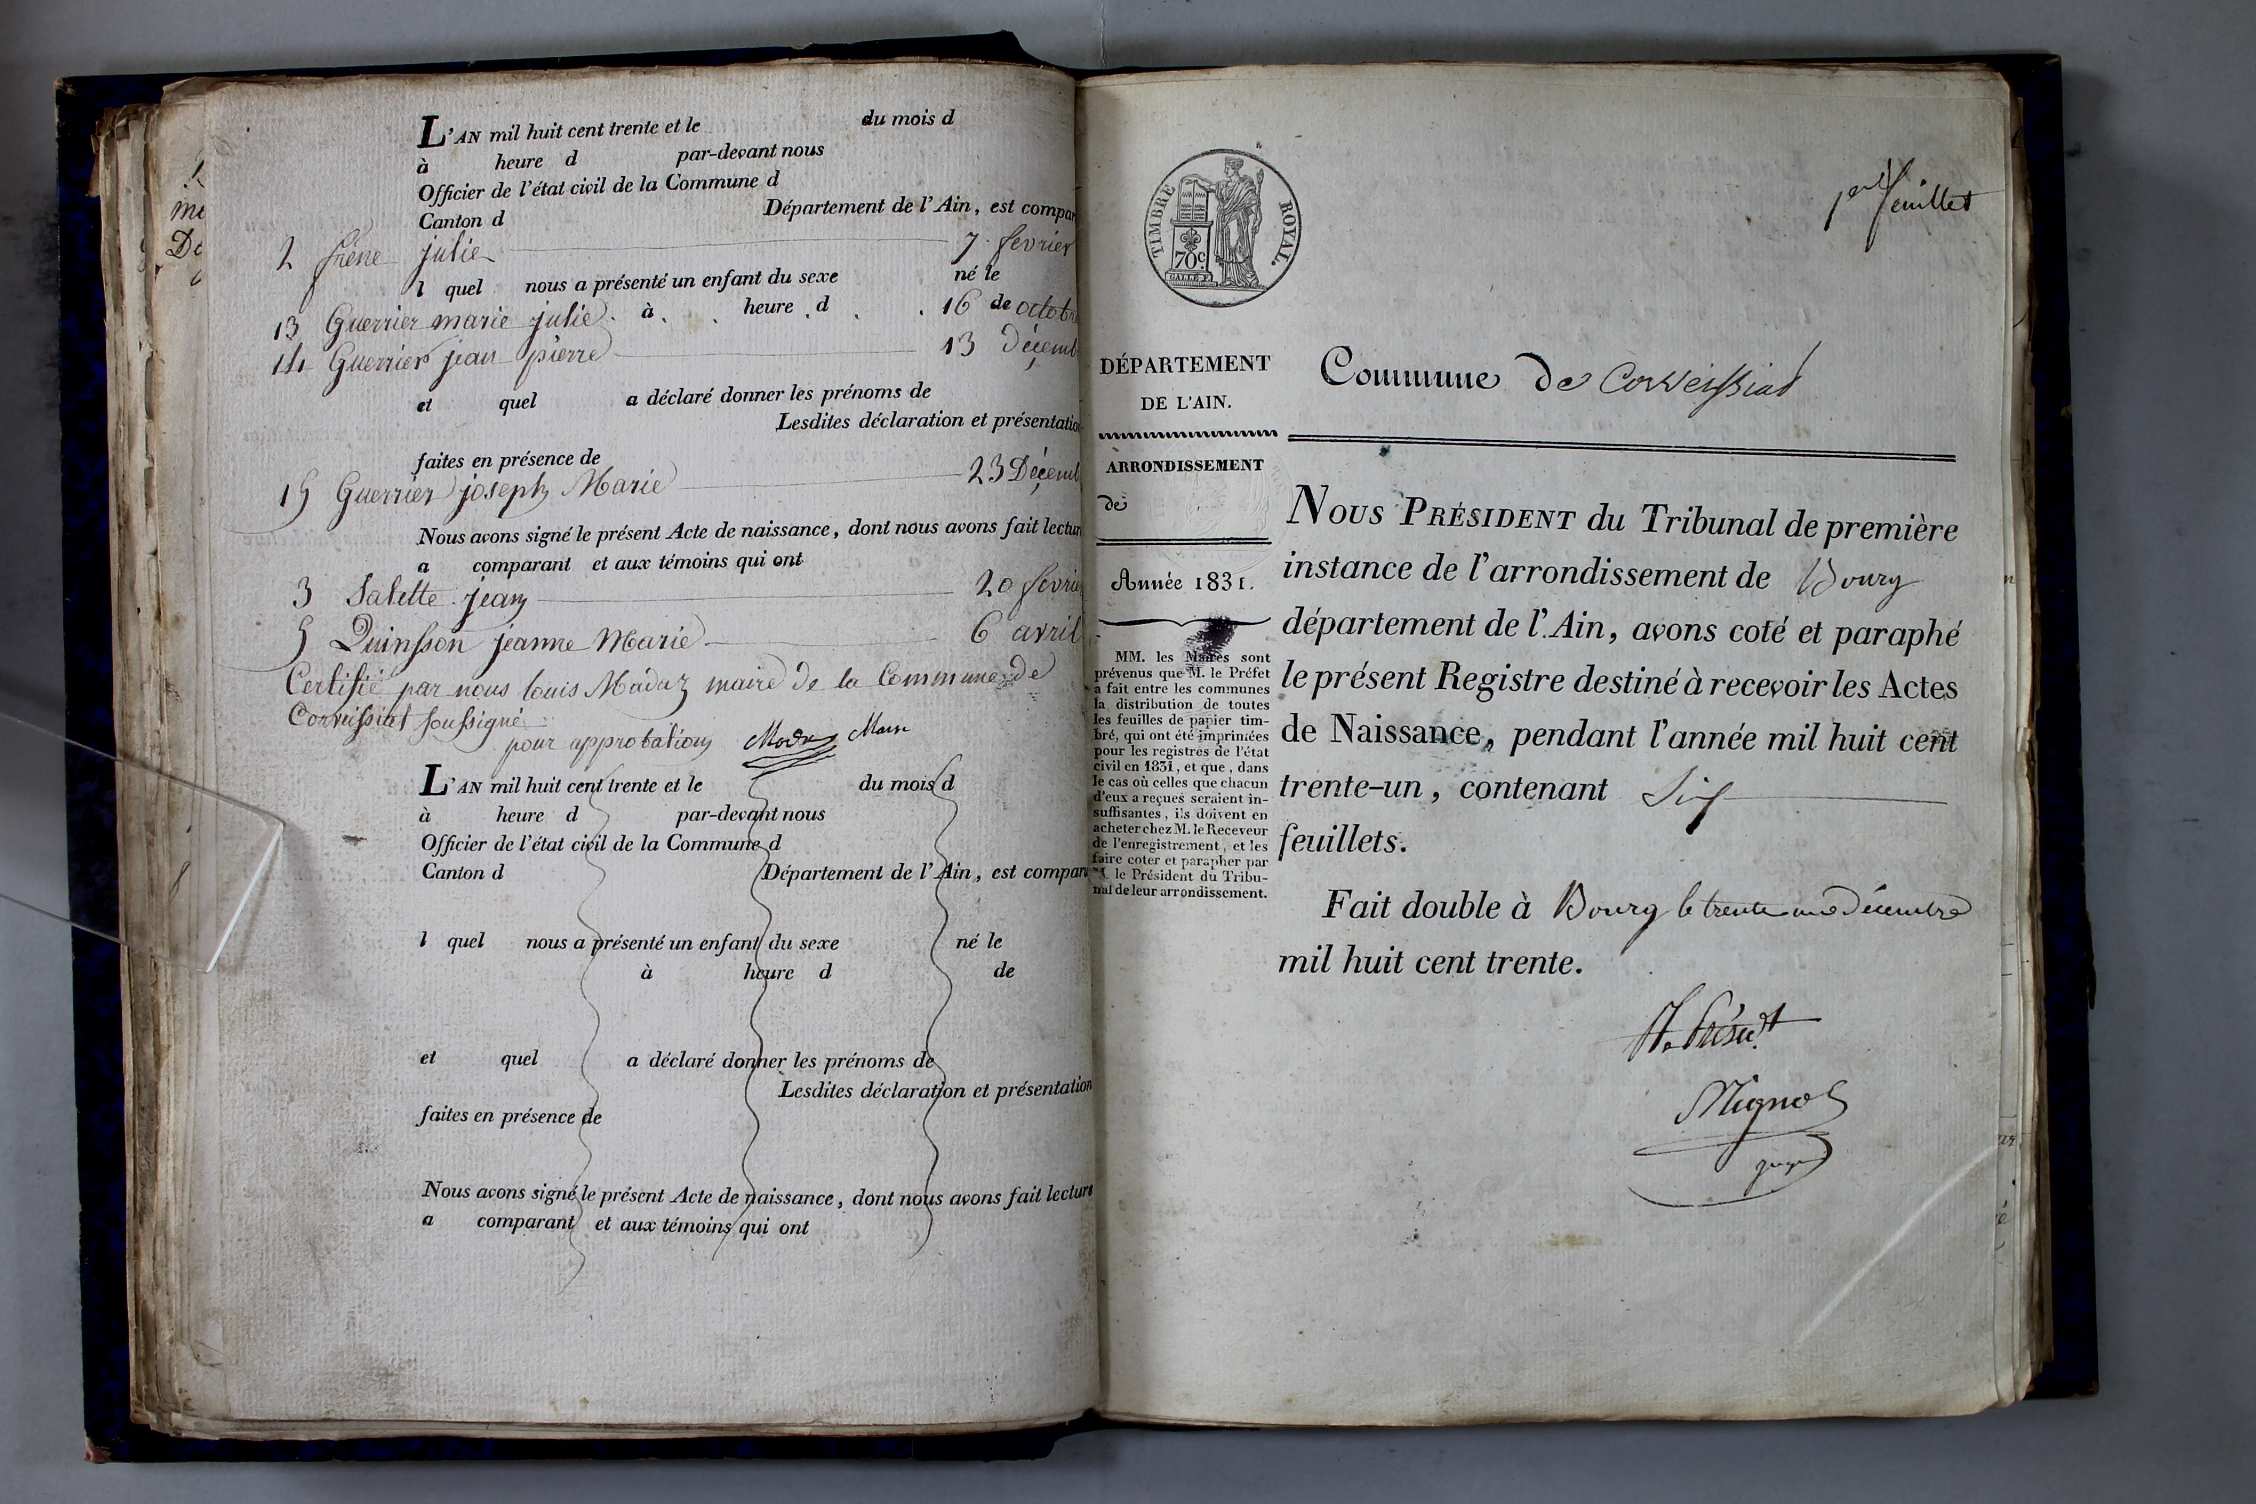 L'AN mil huit cent trente et le du mois d
à heure d par-devant nous
Officier de l'état civil de la Commune d
Canton d Département de l'Ain, est compar
2 frene julie 7 fevrier
l quel nous a présenté un enfant du sexe né le
à heure d de
13 Guerrier marie julie 16 octobre
14 Guerrier jean pierre 13 décemb
et quel a déclaré donner les prénoms de
Lesdites déclaration et présentation
faites en présence de
15 Guerrier joseph Marie 23 Décemb
Nous avons signé le présent Acte de naissance, dont nous avons fait lectur
a comparant et aux témoins qui ont
3 Salette jean 20 fevrier
5 Quinsson jeanne Marie 6 avril
Certifié par nous louis Maduz maire de la Commune de
Corveissiat soussigné
pour approbation Maduz Maire
L'AN mil huit cent trente et le du mois d
à heure d par-devant nous
Officier de l'état civil de la Commune d
Canton d Département de l'Ain, est compar
l quel nous a présenté un enfant du sexe né le
à heure d de
et quel a déclaré donner les prénoms de
Lesdites déclaration et présentation
faites en présence de
Nous avons signé le présent Acte de naissance, dont nous avons fait lecture
a comparant et aux témoins qui ont
1er feuillet
TIMBRE ROYAL.
70c
GALLE F.
DÉPARTEMENT
DE L'AIN.
ARRONDISSEMENT
de
Année 1831.
MM. les Maires sont
prévenus que M. le Préfet
a fait entre les communes
la distribution de toutes
les feuilles de papier tim-
bré, qui ont été imprimées
pour les registres de l'état
civil en 1831, et que, dans
le cas où celles que chacun
d'eux a reçues seraient in-
suffisantes, ils doivent en
acheter chez M. le Receveur
de l'enregistrement, et les
faire coter et parapher par
M. le Président du Tribu-
nal de leur arrondissement.
Commune de Corveissiat
NOUS PRÉSIDENT du Tribunal de première
instance de l'arrondissement de Bourg
département de l'Ain, avons coté et paraphé
le présent Registre destiné à recevoir les Actes
de Naissance, pendant l'année mil huit cent
trente-un, contenant Six
feuillets.
Fait double à Bourg le trente un décembre
mil huit cent trente.
Mignot
juge